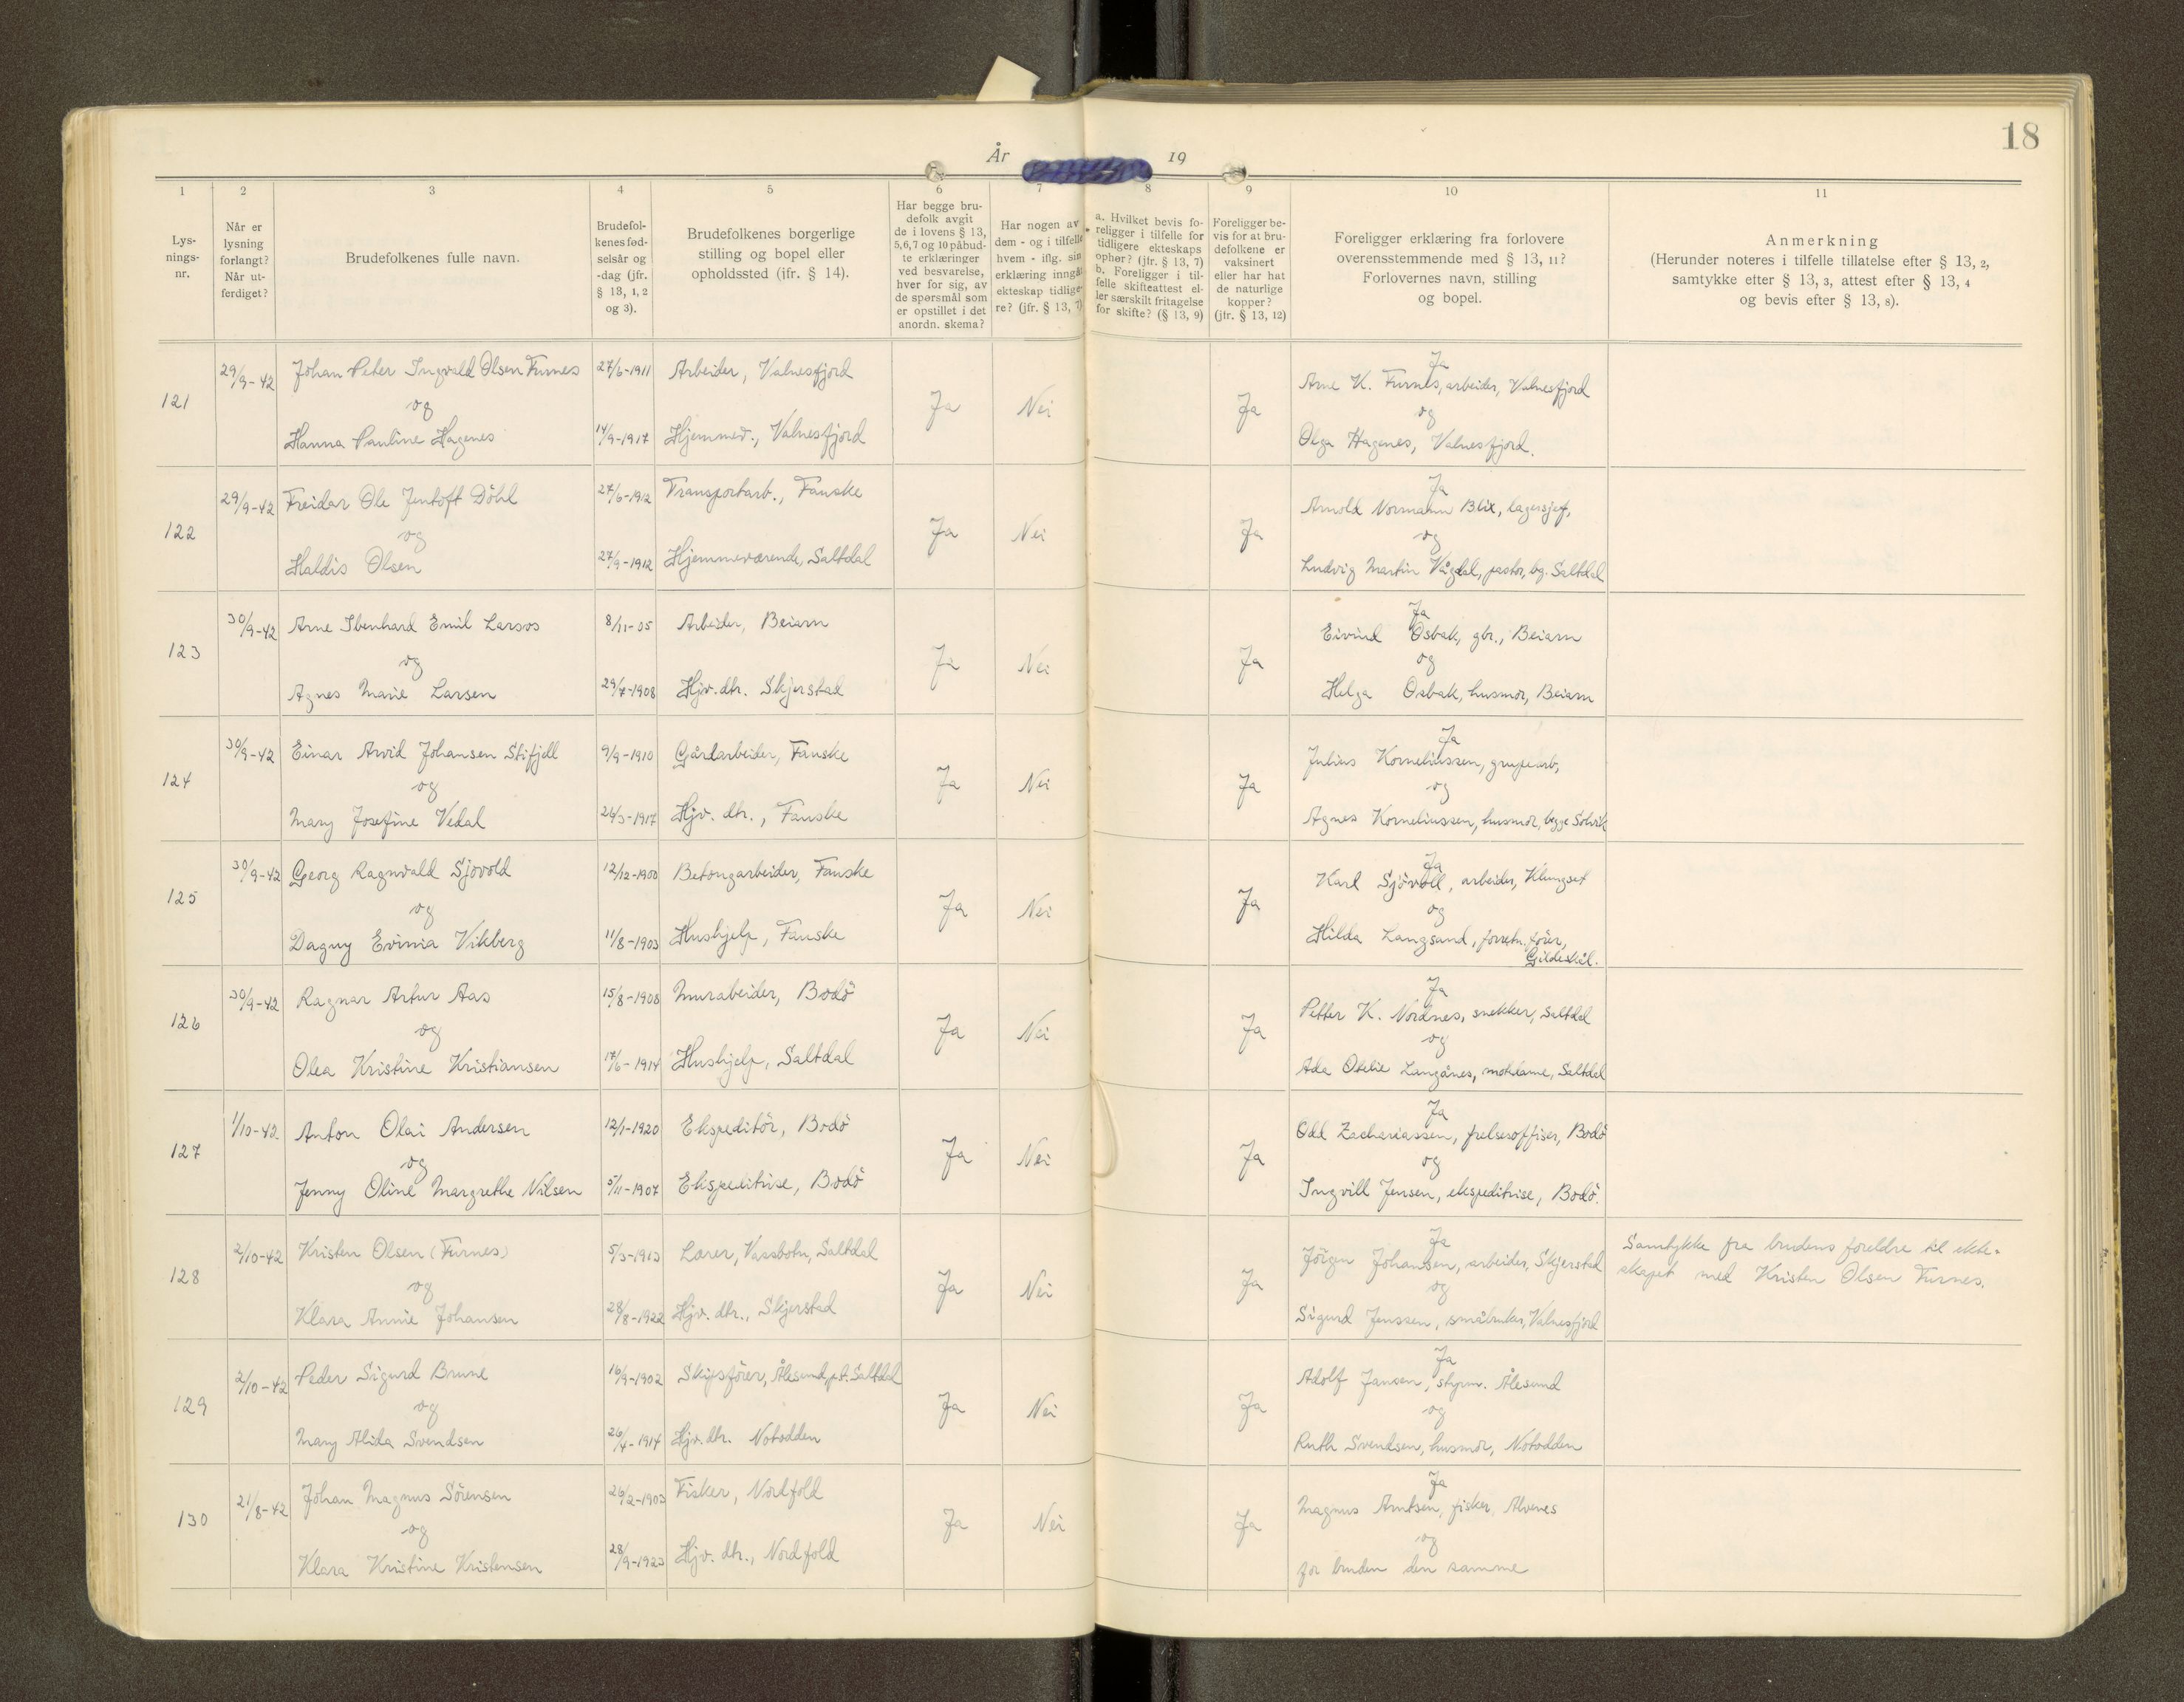 18
År 19
1 2 3 4 5 6 7 8 9 10 11
Lys-
nings-
nr.
Når er
lysning
forlangt?
Når ut-
ferdiget?
Brudefolkenes fulle navn.
Brudefol-
kenes fød-
selsår og
-dag (jfr.
§ 13, 1, 2
og 3).
Brudefolkenes borgerlige
stilling og bopel eller
opholdssted (jfr. § 14).
Har begge bru-
defolk avgit
de i lovens § 13,
5, 6, 7 og 10 påbud-
te erklæringer
ved besvarelse,
hver for sig, av
de spørsmål som
er opstillet i det
anordn. skema?
Har nogen av
dem - og i tilfelle
hvem - iflg. sin
erklæring inngåt
ekteskap tidlige-
re? (jfr. § 13, 7)
a. Hvilket bevis fo-
religger i tilfelle for
tidligere ekteskaps
ophør? (jfr. § 13, 7)
b. Foreligger i til-
felle skifteattest el-
ler særskilt fritagelse
for skifte? (§ 13, 9)
Foreligger be-
vis for at bru-
defolkene er
vaksinert
eller har hat
de naturlige
kopper?
(jfr. § 13, 12)
Foreligger erklæring fra forlovere
overensstemmende med § 13, 11?
Forlovernes navn, stilling
og bopel.
Anmerkning
(Herunder noteres i tilfelle tillatelse efter § 13, 2,
samtykke efter § 13, 3, attest efter § 13, 4
og bevis efter § 13, 8).
121 29/9-42 Johan Peter Ingvald Olsen Furnes 27/6-1911 Arbeider, Valnesfjord Ja Nei Ja Ja
Arne K. Furnes, arbeider, Valnesfjord
og og
Hanna Pauline Hagenes 14/9-1917 Hjemmev., Valnesfjord Olga Hagenes, Valnesfjord.
122 29/9-42 Freidar Ole Jentoft Döhl 27/6-1912 Transportarb., Fauske Ja Nei Ja Ja
Arnold Normann Blix, lagersjef,
og og
Haldis Olsen 27/9-1912 Hjemmeværende, Saltdal Ludvig Martin Vågdal, pastor, bg. Saltdal
123 30/9-42 Arne Ibenhard Emil Larsos 8/11-05 Arbeider, Beiarn Ja Nei Ja Ja
Eivind Osbak, gbr., Beiarn
og og
Agnes Marie Larsen 29/7-1908 Hjv. dtr. Skjerstad Helga Osbak, husmor, Beiarn
124 30/9-42 Einar Arvid Johansen Stifjell 9/9-1910 Gårdarbeider, Fauske Ja Nei Ja Ja
Julius Korneliussen, grupearb,
og og
Mary Josefine Vedal 26/3-1917 Hjv. dtr., Fauske Agnes Korneliussen, husmor, begge Solvik
125 30/9-42 Georg Ragnvald Sjovold 12/12-1900 Betongarbeider, Fauske Ja Nei Ja Ja
Karl Sjövoll, arbeider, Klungset
og og
Dagny Evinia Vikberg 11/8-1903 Hushjelp, Fauske Hilda Langsand, forretn. förer,
Gildeskål.
126 30/9-42 Ragnar Artur Aas 15/8-1908 Murabeider, Bodö Ja Nei Ja Ja
Petter K. Nordnes, snekker, Saltdal
og og
Olea Kristine Kristiansen 17/6-1914 Hushjelp, Saltdal Ada Otelie Langånes, motedame, Saltdal
127 1/10-42. Anton Olai Andersen 12/1-1920 Ekspeditör, Bodö Ja Nei Ja Ja
Odd Zachariassen, frelsesoffiser, Bodö
og og
Jenny Oline Margrethe Nilsen 5/11-1907 Ekspeditrise, Bodö Ingvill Jensen, ekspeditrise, Bodö.
128 2/10-42 Kristen Olsen (Furnes) 5/3-1913 Lærer, Vassbotn, Saltdal Ja Nei Ja Ja
Jörgen Johansen, arbeider, Skjerstad
og og
Klara Annie Johansen 28/8-1922 Hjv. dtr., Skjerstad Sigurd Jenssen, småbruker, Valnesfjord
Samtykke fra brudens foreldre til ekte-
skapet med Kristen Olsen Furnes.
129 2/10-42 Peder Sigurd Brune 16/9-1902 Skipsförer, Ålesund, p.t. Saltdal Ja Nei Ja Ja
Adolf Jansen, styrm. Ålesund
og og
Mary Alida Svendsen 26/4-1914 Hjv. dtr. Notodden Ruth Svendsen, husmor, Notodden
130 21/8-42 Johan Magnus Sörensen 26/2-1903 Fisker, Nordfold Ja Nei Ja Ja
Magnus Arntsen, fisker, Alvenes
og og
Klara Kristine Kristensen 28/9-1923 Hjv. dtr., Nordfold for bruden den samme